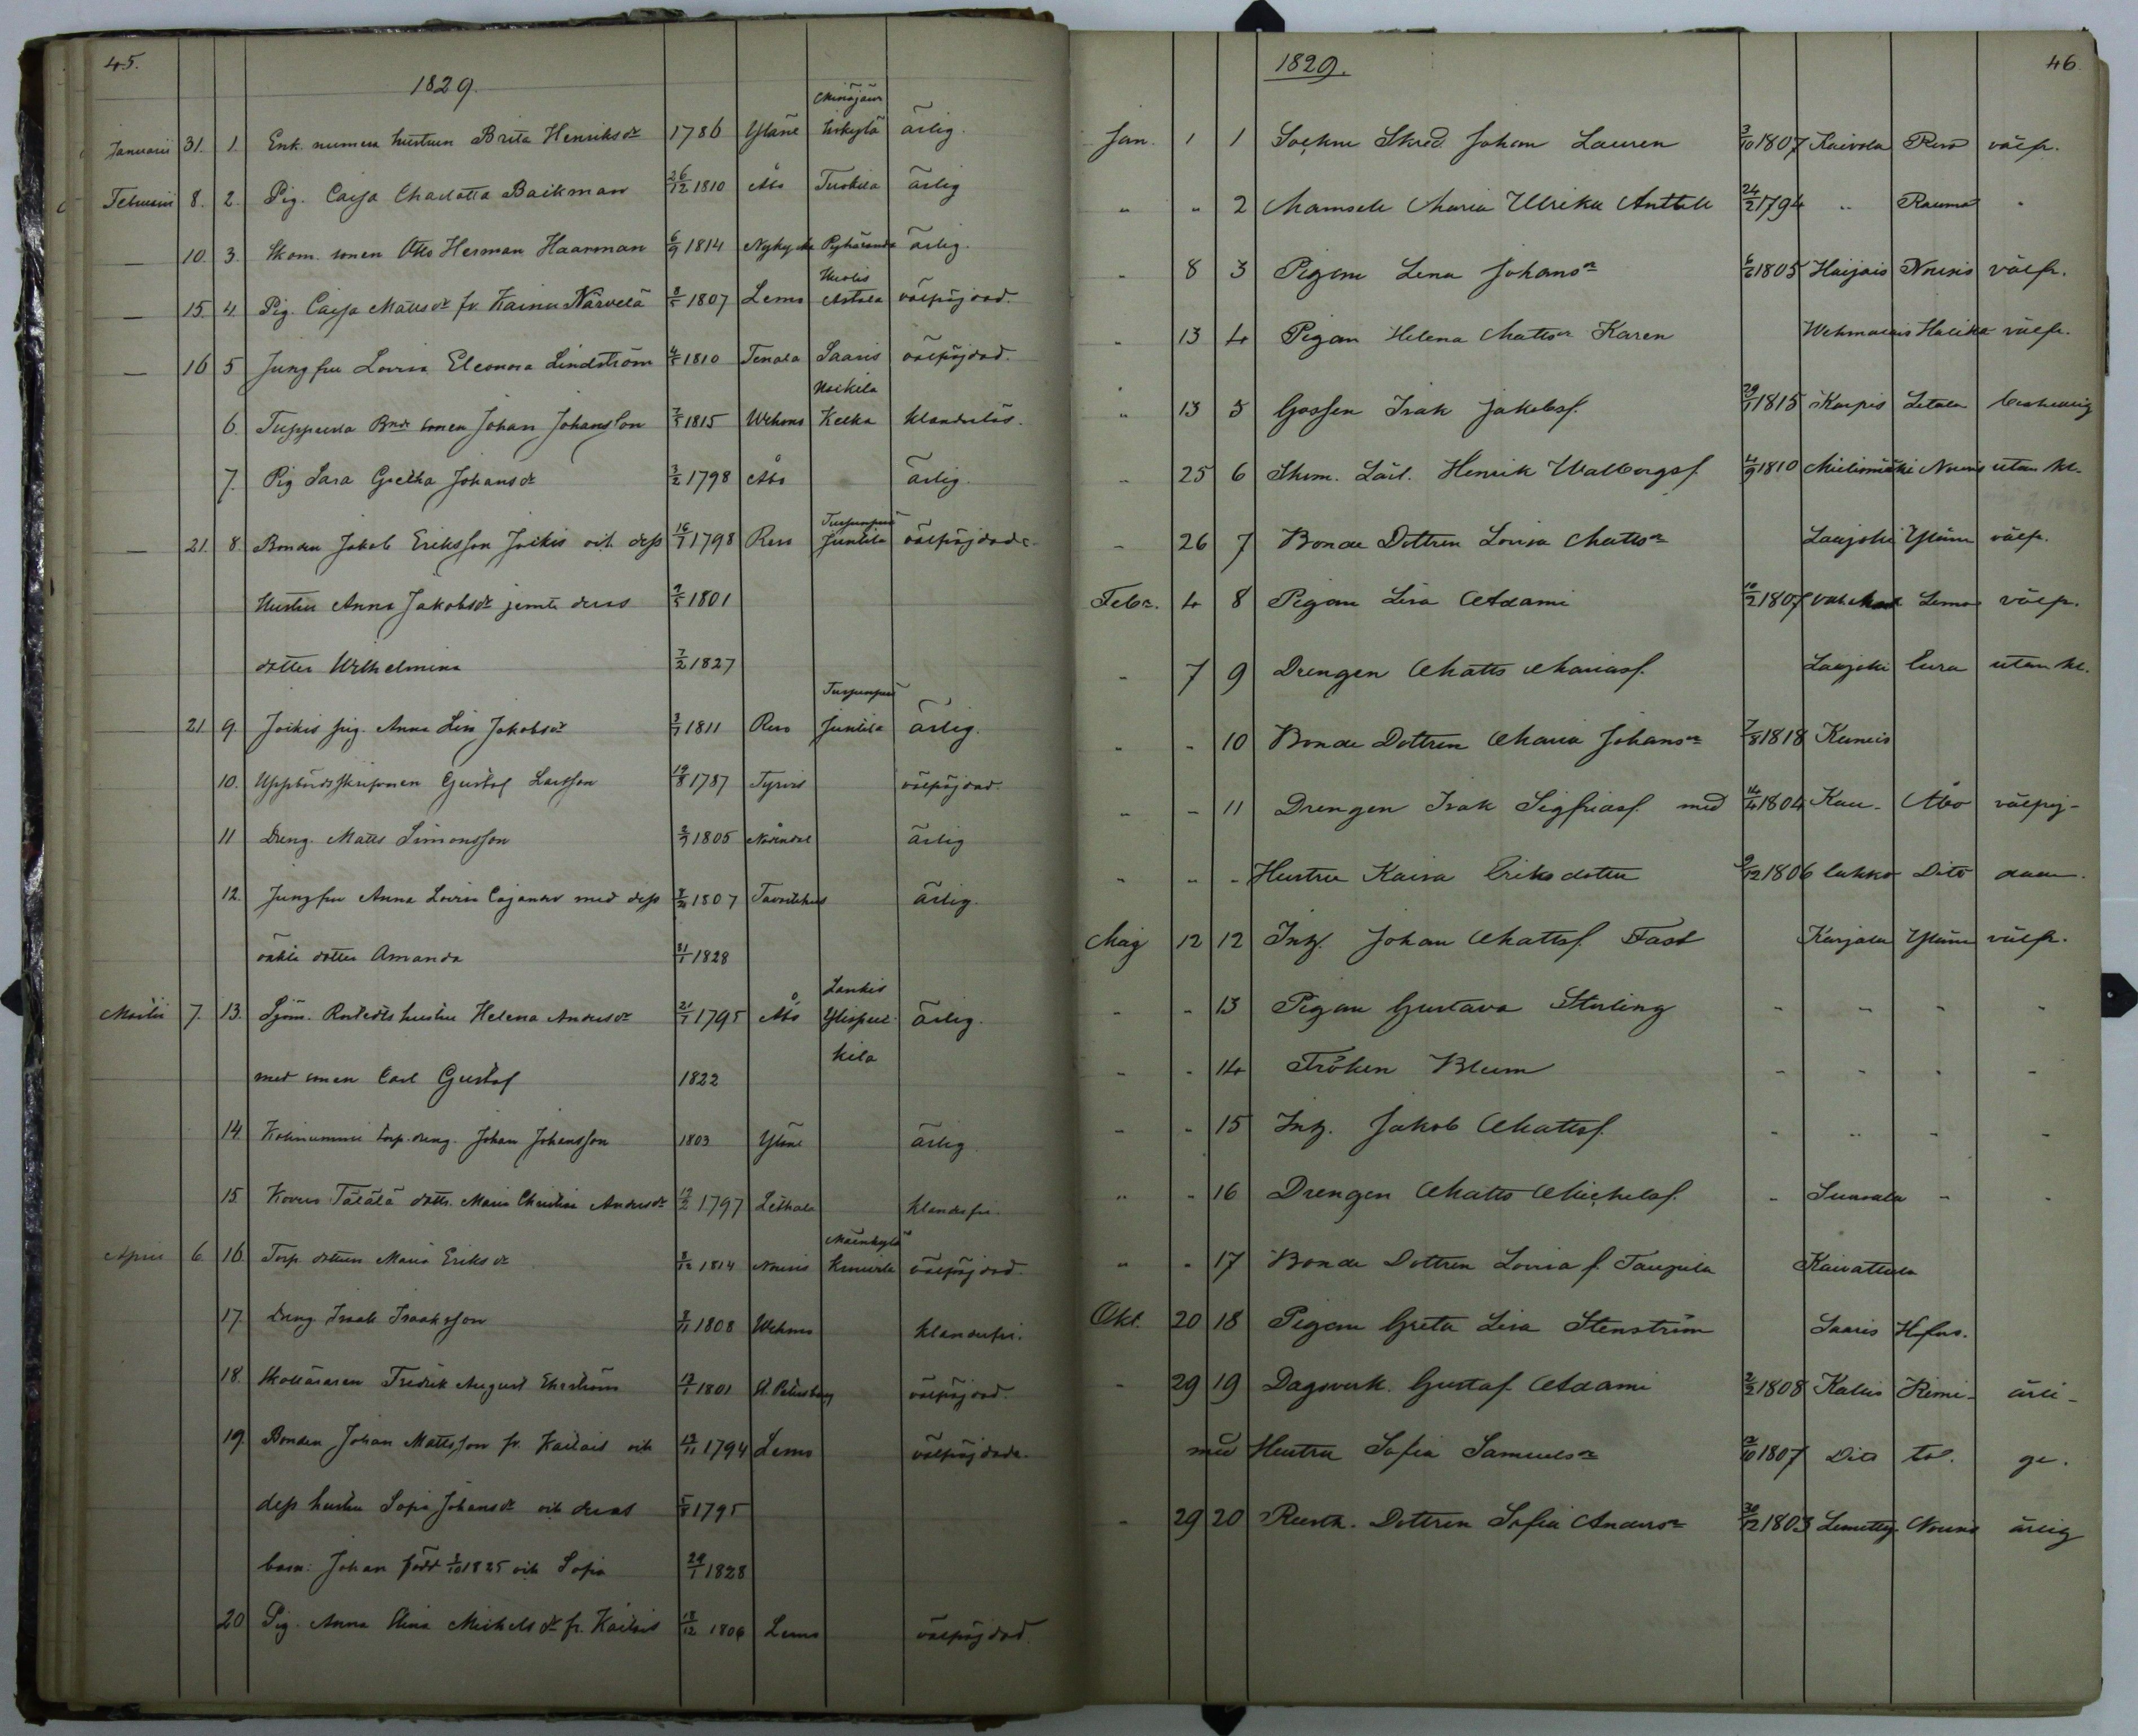 45.
1829.
Januarii 31. 1. Enk. numera hustrun Brita Henriksdr 1786 Yläne ärlig.
Februarii 8. 2. Pig. Cajsa Charlotta Backman 26/12 1810 Åbo Tuokila ärlig
— 10. 3. Skom. sonen Otto Herman Haarman 6/9 1814 Nykyrka Pyhäranda ärlig.
— 15. 4. Pig. Cajsa Mattsdr fr. Kainu Närvelä 8/5 1807 Lemo välfrejdad.
— 16 5 Jungfru Lovisa Eleonora Lindström 4/5 1810 Tenala Saaris välfrejdad.
6. Tuppurla Bnde sonen Johan Johansson 7/5 1815 Wehmo Kelka klanderlös.
7. Pig Sara Gretha Johansdr 3/2 1798 Åbo ärlig.
— 21. 8. Bonden Jakob Eriksson Joikis och dess 16/7 1798 Reso Juntila välfrejdade
Hustru Anna Jakobsdr jemte deras 9/5 1801
dotter Wilhelmina 7/2 1827
21. 9. Joikis pig. Anna Lisa Jakobsdr 3/7 1811 Reso Juntila ärlig.
10. Gustaf Larsson 19/8 1787 Tyrvis välfrejdad.
11 Dreng. Matts Simonsson 2/9 1805 Nådendal ärlig
12. Jungfru Anna Lovisa Cajander med dess 1807 Tavastehus ärlig.
oäkta dotter Amanda 31/1 1828
Martii 7. 13. Sjöm. hustru Helena Andersdr 21/7 1795 Åbo ärlig.
med sonen Carl Gustaf 1822
14. torp. dreng. Johan Johansson 1803 Yläne ärlig.
15. Tälälä dottr. Maria Christina Andersdr 12/2 1797 Letala klanderfri.
April 6. 16. Torp. dottren Maria Eriksdr 1814 Nousis välfrejdad.
17. Dreng Isaak Isaaksson 1808 Wehmo klanderfri.
18. Skolläraren Fredrik August Ekström 1801 St. Petersburg välfrejdad.
19. Bonden Johan Mattsson fr. Kailais och 1794 Lemo välfrejdade.
dess hustru Sofia Johansdr och deras 5/8 1795
barn: Johan född 1825 och Sofia 29/1 1828
20 Pig. Anna Stina Michelsdr fr. Kailais 18/12 1806 Lemo välfrejdad.
1829.
46.
Jan. 1 1 Sockne Skred. Johan Lauren 3/10 1807 Kaivola Reso välfr.
" " 2 Mamsell Maria Ulrika Anttell 24/2 1794 " Rauma "
" 8 3 Pigan Lena Johansr 6/2 1805 Haijais Nousis välfr.
" 13 4 Pigan Helena Mattsr Karen Halikko välfr.
" 13 5 Gossen Isak Jakobsf. 29/1 1815 Karpis Letala
" 25 6 Skom. Lärl. Henrik Walborgsf. 4/9 1810 Mielismäki Nousis utan kl.
" 26 7 Bonde Dottren Lovisa Mattsr Laajoki Yläne välfr.
Febr. 4 8 Pigan Lisa Adami 10/2 1807 Lemo välfr.
" 7 9 Drengen Matts Mariasf. Laajoki Eura utan kl.
" " 10 Bonde Dottren Maria Johansr 7/8 1818 Kuneis
" " 11 Drengen Isak Sigfridsf. med 14/4 1804 Kau- Åbo välfrej-
" " " Hustru Kaisa Eriksdotter 9/12 1806 lukko Dito dade.
Maj 12 12 Inh. Johan Mattsf. Fast Karjala Yläne välfr.
" " 13 Pigan Gustava Sterling " " " "
" " 14 Fröken Blum " " " "
" " 15 Inh. Jakob Mattsf. " " " "
" " 16 Drengen Matts Michelsf. " " "
" " 17 Bonde Dottren Lovisa f. Taupila Kaivattula
Okt. 20 18 Pigan Greta Lisa Stenström Saaris Hfors.
" 29 19 Dagsverk. Gustaf Adami 2/2 1808 Kallis Kimi- ärli-
med Hustru Sofia Samuelsr 1807 Dito to. ge.
" 29 20 Rusth. Dottren Sofia Andersr 30/12 1803 Nousis ärlig